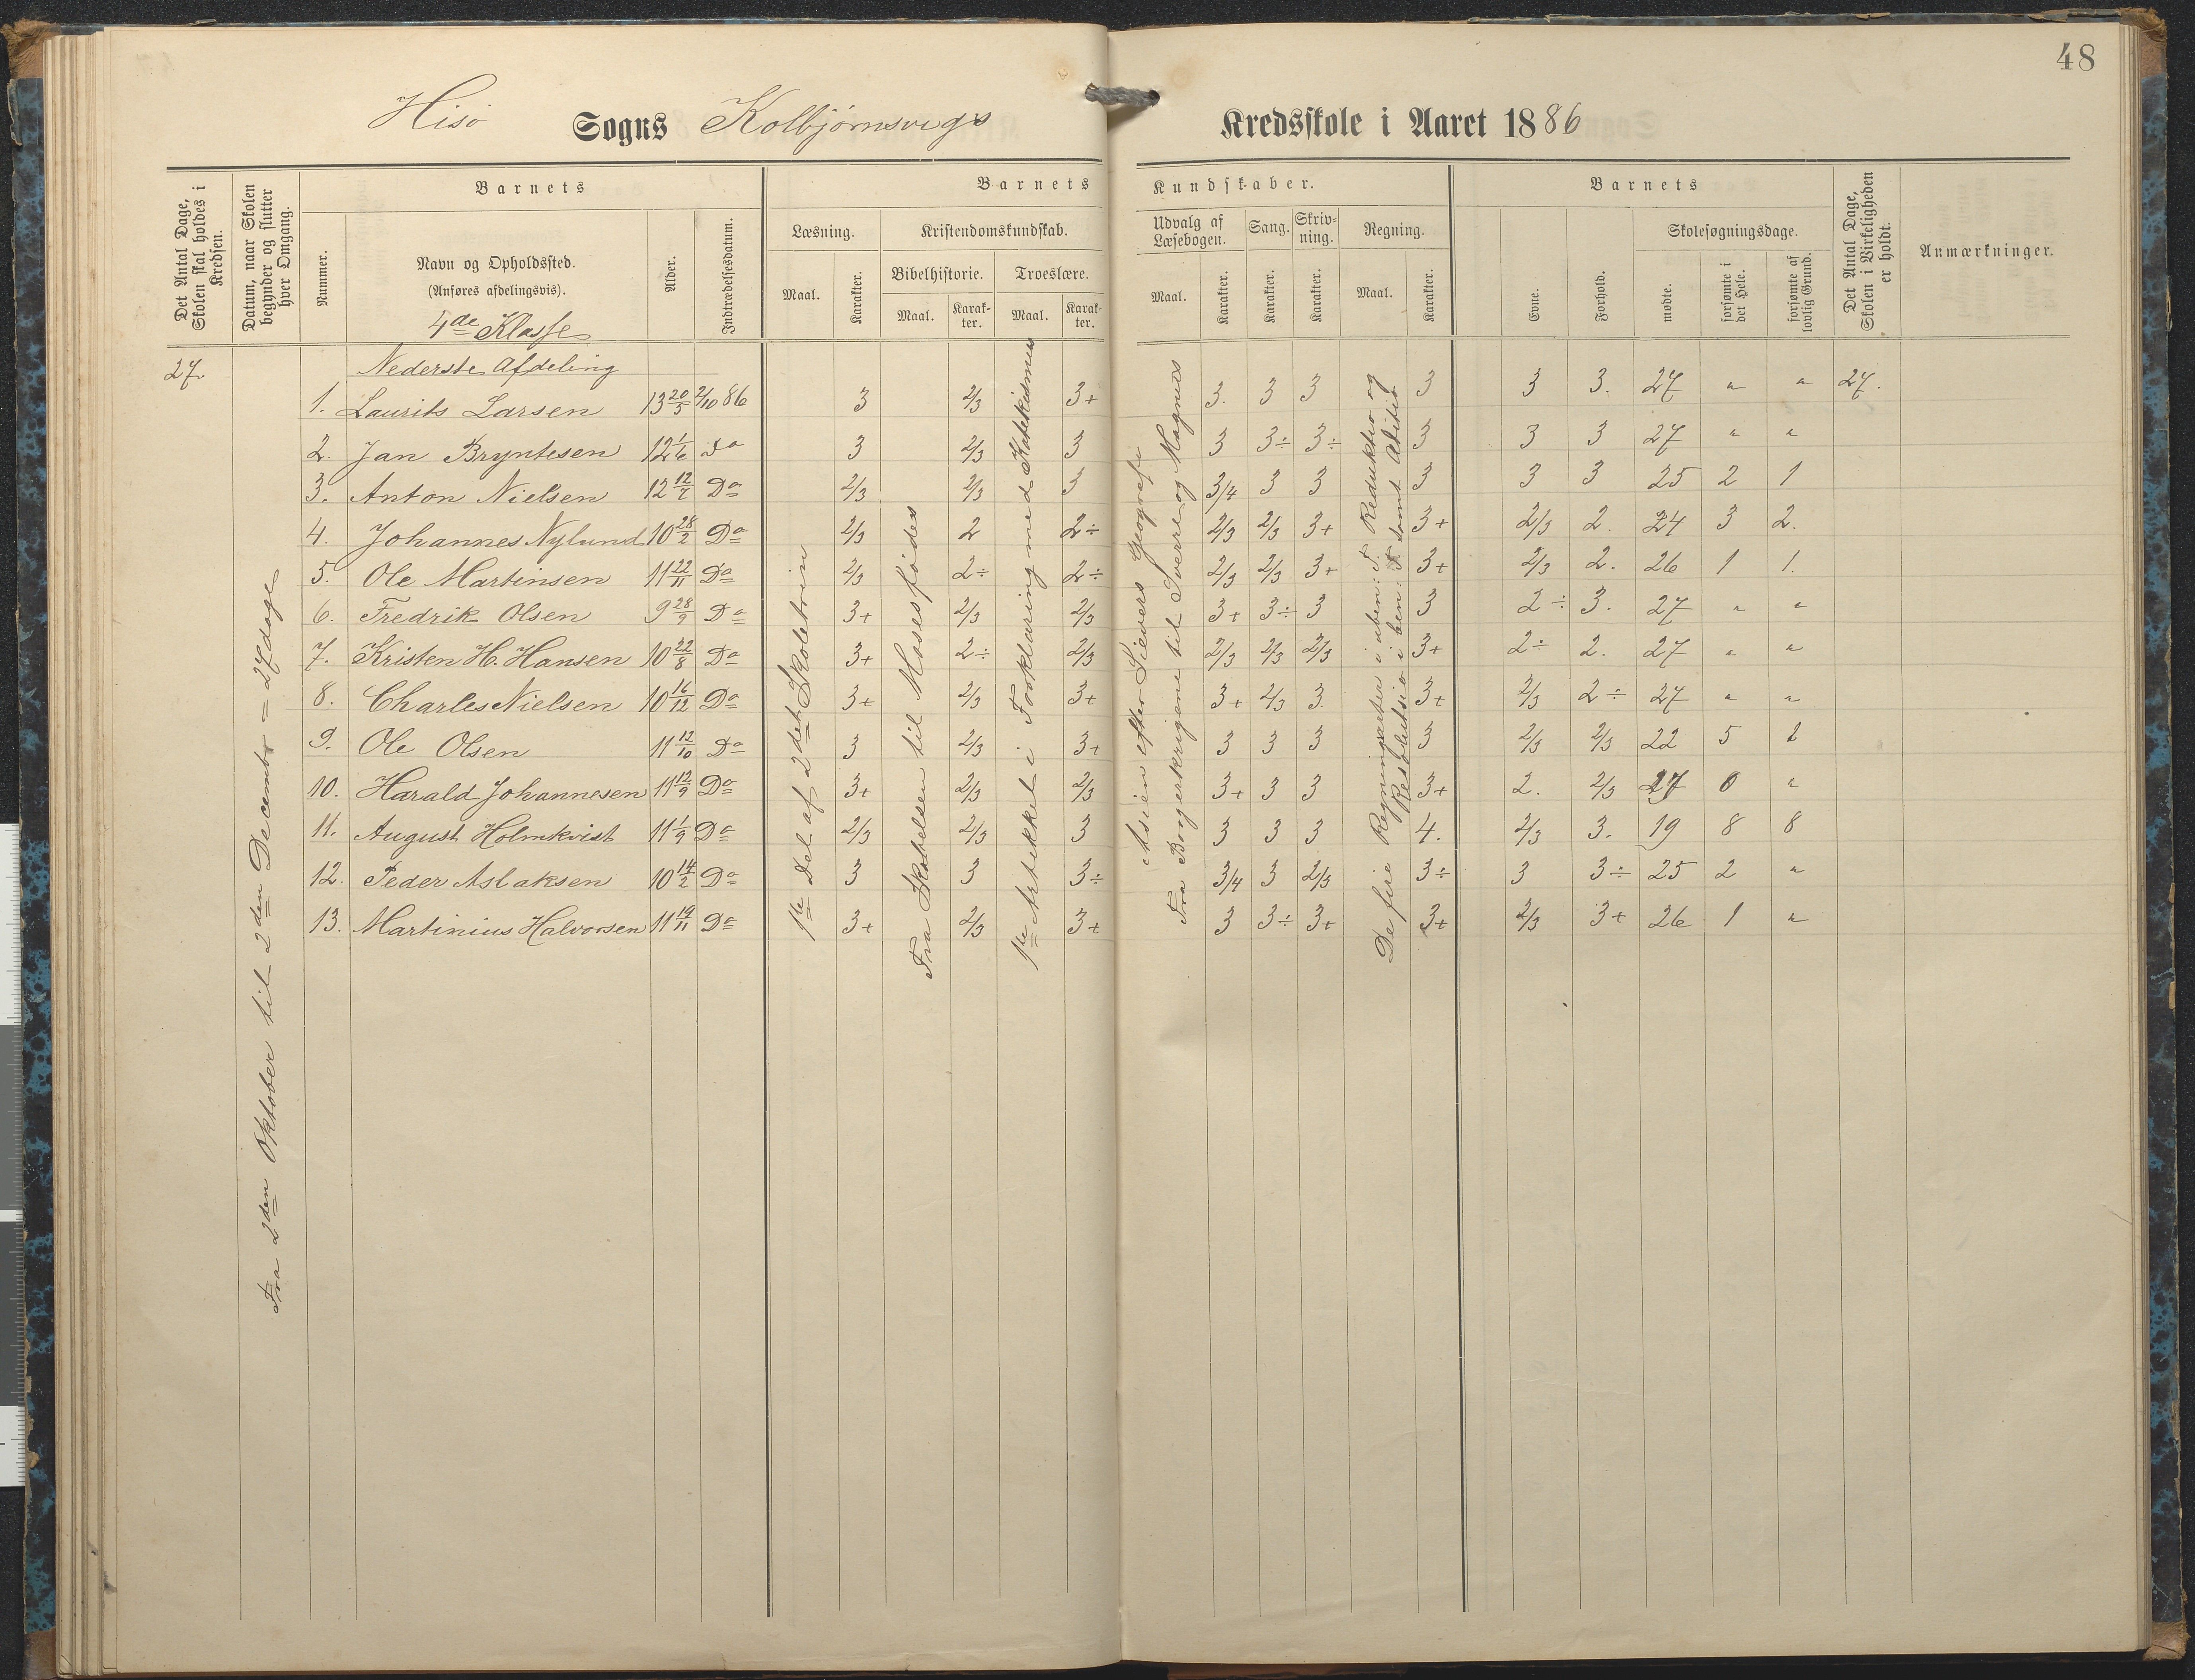 48
Hisö Sogns Kolbjørnsvigs Kredsskole i Aaret 1886
Det Antal Dage, Skolen skal holdes i Kredsen.
Datum, naar Skolen begynder og slutter hver Omgang.
Barnets
Nummer.
Navn og Opholdssted.
(Anføres afdelingsvis).
4de Klasse
Alder.
Indtrædelsesdatum.
Barnets Kundskaber.
Læsning.
Maal.
Karakter.
Kristendomskundskab.
Bibelhistorie.
Maal.
Karakter.
Troeslære.
Maal.
Karakter.
Udvalg af Læsebogen.
Maal.
Karakter.
Sang.
Karakter.
Skrivning.
Karakter.
Regning.
Maal.
Karakter.
Barnets
Evne.
Forhold.
Skolesøgningsdage.
mødte.
forsømte i det Hele.
forsømte af lovlig Grund.
Det Antal Dage, Skolen i Virkeligheden er holdt.
Anmærkninger.
27.
Nederste Afdeling
1. Laurits Larsen 13 20/5 2/10 86 3 2/3 3+ 3. 3 3 3 3 3. 27 " " 27.
2. Jan Bryntesen 12 1/6 Do 3 2/3 3 3 3÷ 3÷ 3 3 3 27 " "
3. Anton Nielsen 12 12/7 Do 2/3 2/3 3 3/4 3 3 3 3 3 25 2 1
4. Johannes Nylund 10 28/2 Do 2/3 2 2÷ 2/3 2/3 3+ 3+ 2/3 2. 24 3 2.
5. Ole Martinsen 11 22/11 Do 2/3 2÷ 2÷ 2/3 2/3 3+ 3+ 2/3 2. 26 1 1.
6. Fredrik Olsen 9 28/9 Do 3+ 2/3 2/3 3+ 3÷ 3 3 2÷ 3. 27 " "
7. Kristen H. Hansen 10 22/8 Do 3+ 2÷ 2/3 2/3 2/3 2/3 3+ 2÷ 2. 27 " "
8. Charles Nielsen 10 16/12 Do 3+ 2/3 3+ 3+ 2/3 3. 3+ 2/3 2÷ 27 " "
9. Ole Olsen 11 12/10 Do 3 2/3 3+ 3 3 3 3 2/3 2/3 22 5 2
10. Harald Johannesen 11 12/9 Do 3+ 2/3 2/3 3+ 3 3 3+ 2. 2/3 27 0 "
11. August Holmkvist 11 1/9 Do 2/3 2/3 3 3 3 3 4. 2/3 3. 19 8 8
12. Peder Aslaksen 10 14/2 Do 3 3 3÷ 3/4 3 2/3 3÷ 3 3÷ 25 2 "
13. Martinius Halvorsen 11 19/11 Do 3+ 2/3 3+ 3 3÷ 3+ 3+ 2/3 3+ 26 1 "
Fra 2den Oktober til 2den Decembr = 27 dage
1ste Del af 2det Skoletrin
Fra Skabelsen til Moses fødes
1ste Artikkel i Forklaring med Katekismus
Asien efter Sievers Geografi
Fra Borgerkrigene til Sverre og Magnus
De fire Regningsarter i uben: T. Reduktio og
Resolutsio i ben: T. samt Aditio